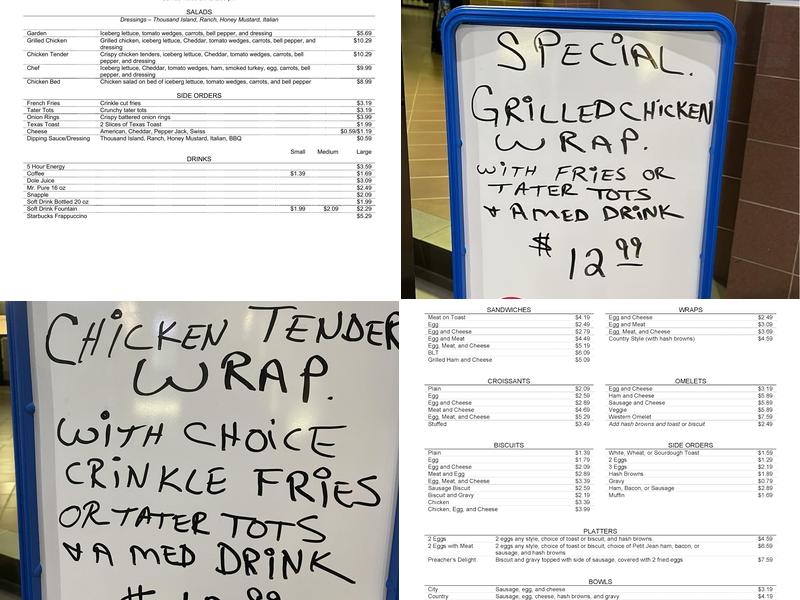 SALADS
Dressings – Thousand Island, Ranch, Honey Mustard, Italian
Garden Iceberg lettuce, tomato wedges, carrots, bell pepper, and dressing $5.69
Grilled Chicken Grilled chicken, iceberg lettuce, Cheddar, tomato wedges, carrots, bell pepper, and $10.29
dressing
Chicken Tender Crispy chicken tenders, iceberg lettuce, Cheddar, tomato wedges, carrots, bell $10.29
pepper, and dressing
Chef Iceberg lettuce, Cheddar, tomato wedges, ham, smoked turkey, egg, carrots, bell $9.99
pepper, and dressing
Chicken Bed Chicken salad on bed of iceberg lettuce, tomato wedges, carrots, and bell pepper $8.99
SIDE ORDERS
French Fries Crinkle cut fries $3.19
Tater Tots Crunchy tater tots $3.19
Onion Rings Crispy battered onion rings $3.99
Texas Toast 2 Slices of Texas Toast $1.99
Cheese American, Cheddar, Pepper Jack, Swiss $0.59/$1.19
Dipping Sauce/Dressing Thousand Island, Ranch, Honey Mustard, Italian, BBQ $0.59
Small Medium Large
DRINKS
5 Hour Energy $3.59
Coffee $1.39 $1.69
Dole Juice $3.09
Mr. Pure 16 oz $2.49
Snapple $2.09
Soft Drink Bottled 20 oz $1.99
Soft Drink Fountain $1.99 $2.09 $2.29
Starbucks Frappuccino $5.29
SPECIAL.
GRILLED CHICKEN
WRAP.
WITH FRIES OR
TATER TOTS
& A MED DRINK
$12 99
CHICKEN TENDER
WRAP.
WITH CHOICE
CRINKLE FRIES
OR TATER TOTS
& A MED DRINK
SANDWICHES
Meat on Toast $4.19
Egg $2.49
Egg and Cheese $2.79
Egg and Meat $4.49
Egg, Meat, and Cheese $5.19
BLT $6.09
Grilled Ham and Cheese $5.09
WRAPS
Egg and Cheese $2.49
Egg and Meat $3.09
Egg, Meat, and Cheese $3.69
Country Style (with hash browns) $4.59
CROISSANTS
Plain $2.09
Egg $2.59
Egg and Cheese $2.89
Meat and Cheese $4.69
Egg, Meat, and Cheese $5.29
Stuffed $3.49
OMELETS
Egg and Cheese $3.19
Ham and Cheese $5.89
Sausage and Cheese $5.89
Veggie $5.89
Western Omelet $7.59
Add hash browns and toast or biscuit $2.49
BISCUITS
Plain $1.39
Egg $1.79
Egg and Cheese $2.09
Meat and Egg $2.89
Egg, Meat, and Cheese $3.39
Sausage Biscuit $2.59
Biscuit and Gravy $2.19
Chicken $3.39
Chicken, Egg, and Cheese $3.99
SIDE ORDERS
White, Wheat, or Sourdough Toast $1.59
2 Eggs $1.29
3 Eggs $2.19
Hash Browns $1.89
Gravy $0.79
Ham, Bacon, or Sausage $2.89
Muffin $1.69
PLATTERS
2 Eggs 2 eggs any style, choice of toast or biscuit, and hash browns $4.59
2 Eggs with Meat 2 eggs any style, choice of toast or biscuit, choice of Petit Jean ham, bacon, or $6.59
sausage, and hash browns
Preacher's Delight Biscuit and gravy topped with side of sausage, covered with 2 fried eggs $7.59
BOWLS
City Sausage, egg, and cheese $3.19
Country Sausage, egg, cheese, hash browns, and gravy $4.19